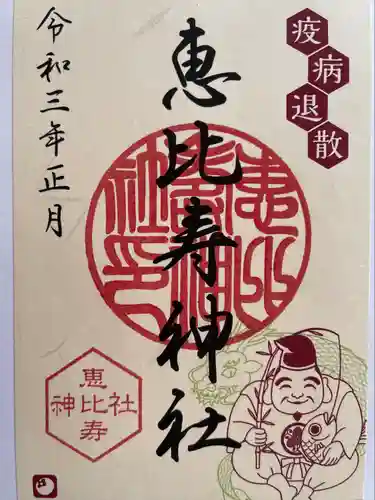 疫病退散
恵比寿神社
令和三年正月
恵比寿
神社